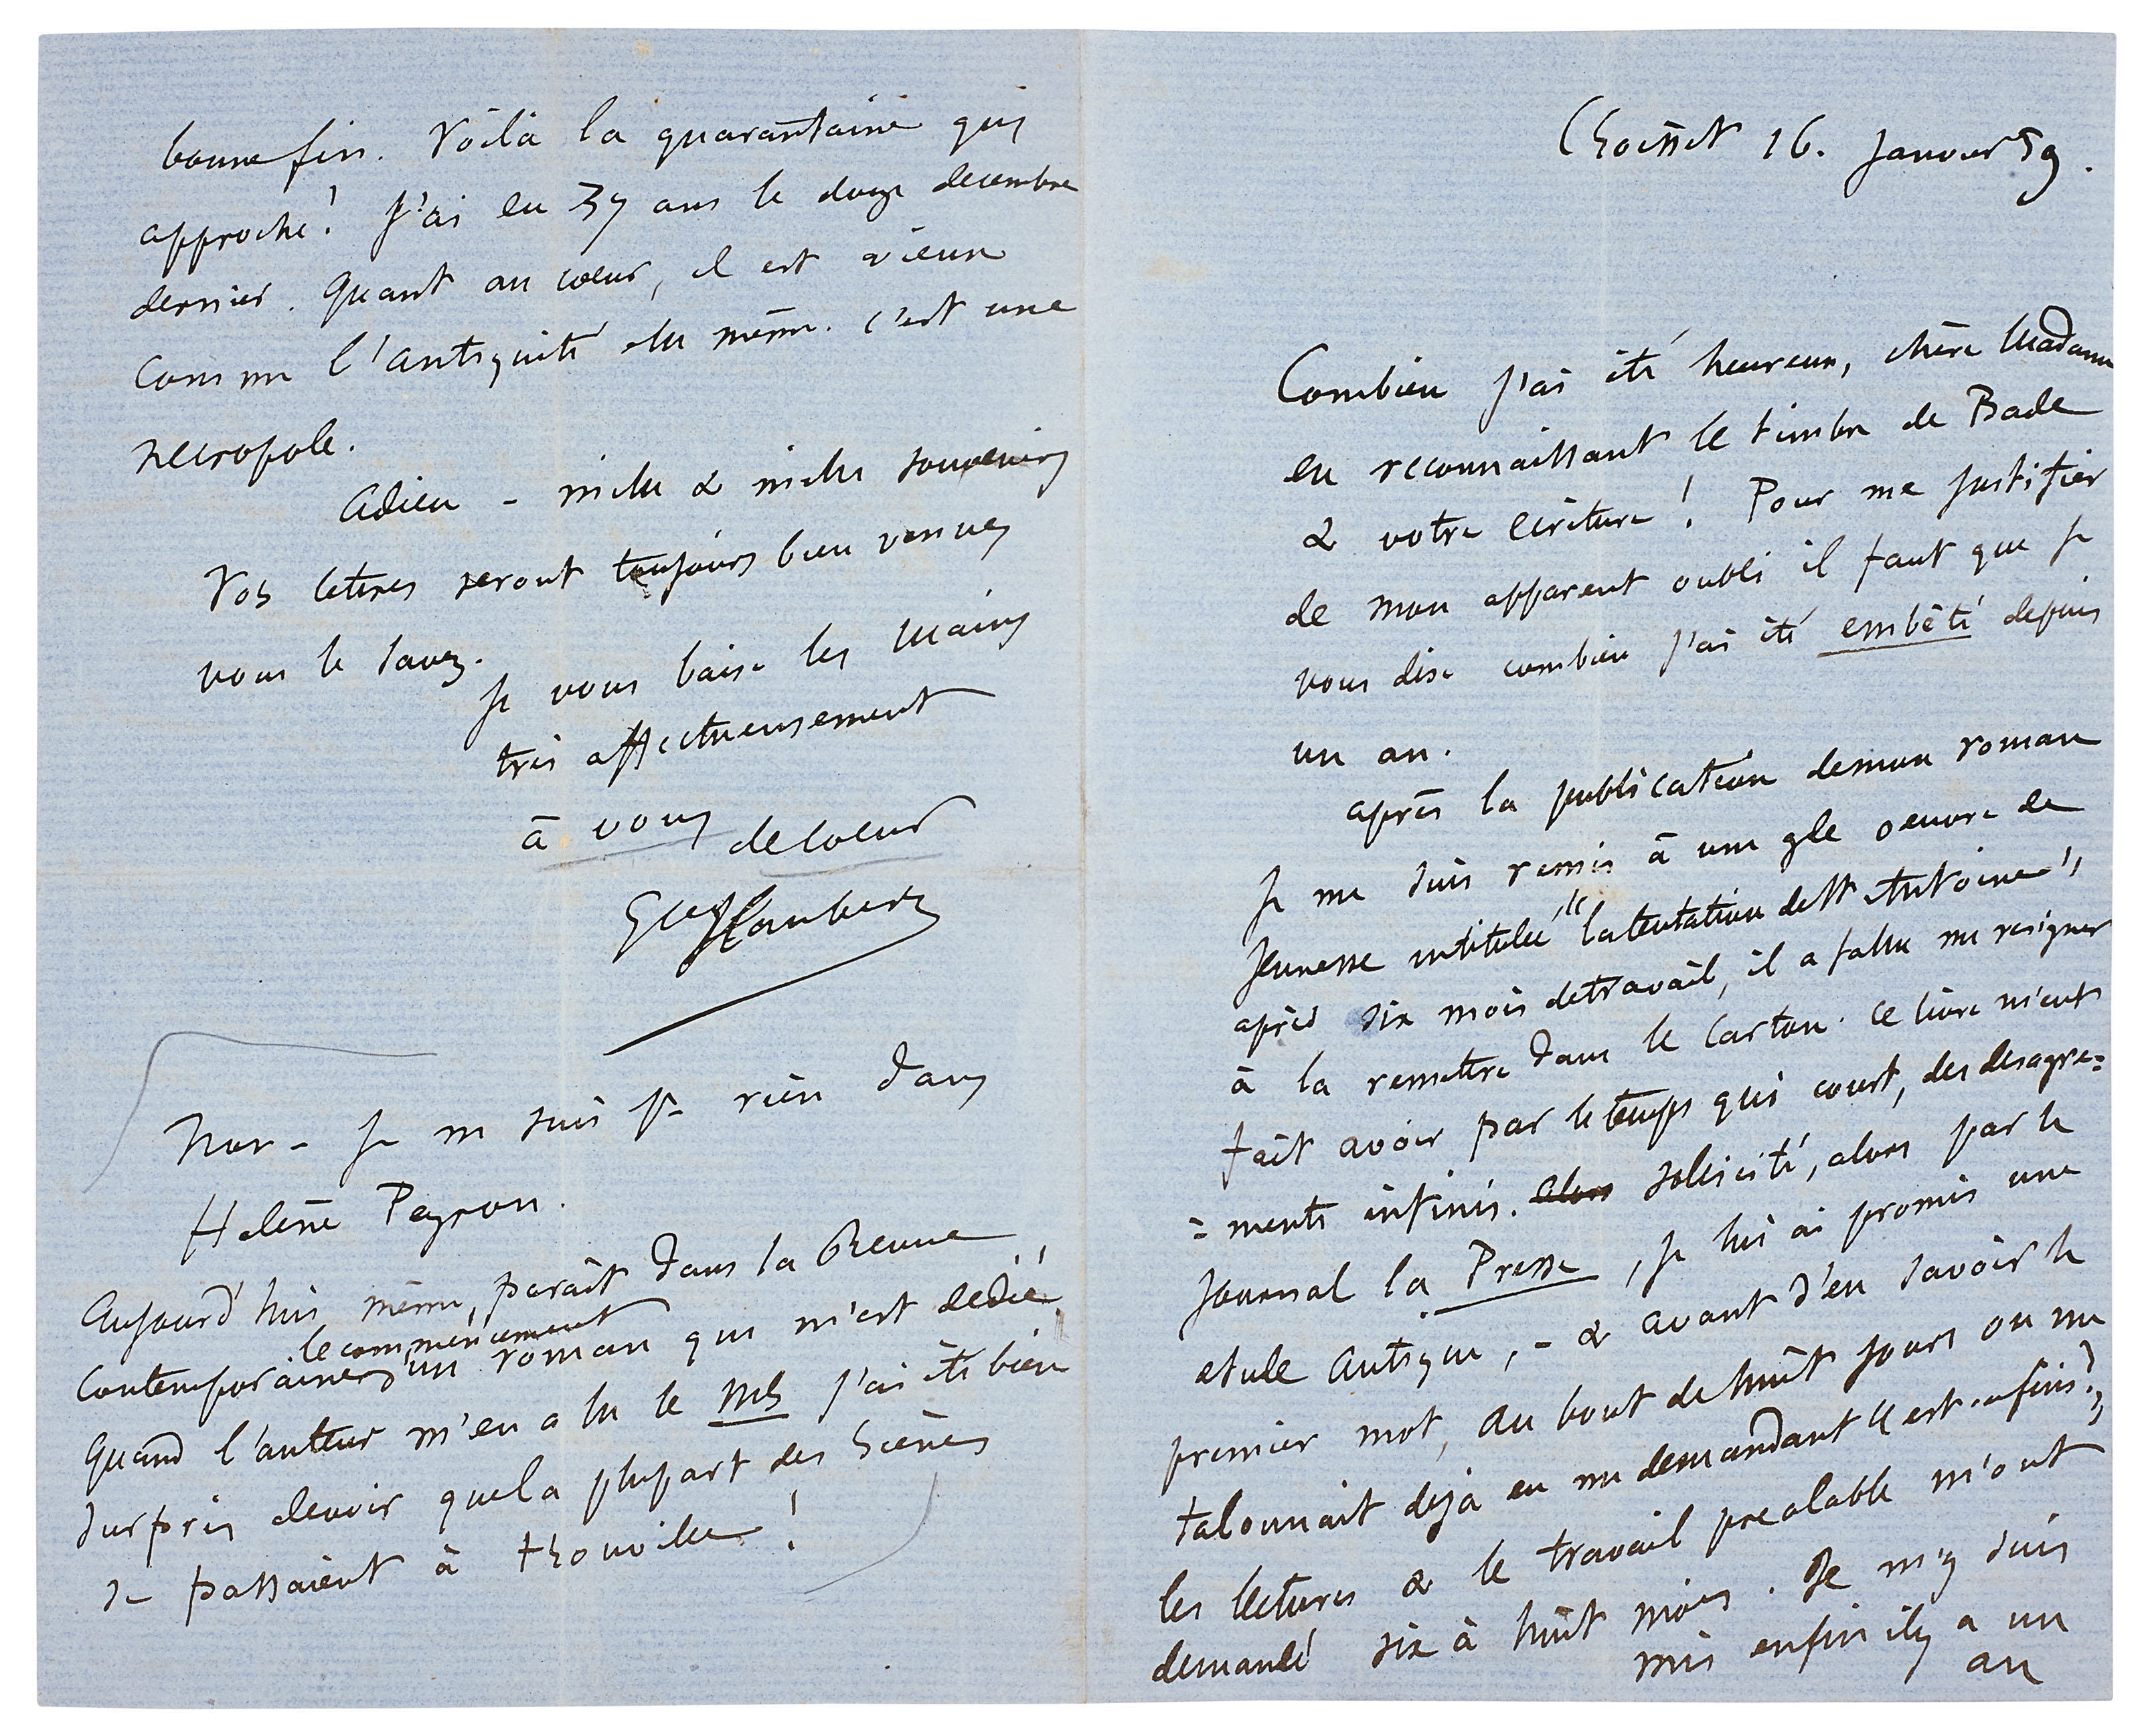 Croisset 16. Janvier 59.
Combien j'ai été heureux, chère Madame
en reconnaissant le timbre de Bade
& votre écriture ! Pour me justifier
de mon apparent oubli il faut que je
vous dise combien j'ai été embêté depuis
un an.
après la publication de mon roman
je me suis remis à une gde oeuvre de
jeunesse intitulée "la tentation de St Antoine"
après six mois de travail, il a fallu me résigner
à la remettre dans le carton. ce livre m'eut
fait avoir par le temps qui court, des désagré=
=ments infinis. alors solicité, alors par le
journal la Presse, je lui ai promis une
etude antique, - & avant d'en savoir le
premier mot, au bout de huit jours on me
talonnait déjà en me demandant "est-ce fini?"
les lectures & le travail préalable m'ont
demandé six à huit mois. Je m'y suis
mis enfin il y a un
an
bonne fin. Voilà la quarantaine qui
approche! J'ai eu 37 ans le douze décembre
dernier. Quant au coeur, il est vieux
comme l'antiquité elle même. c'est une
nécropole.
Adieu - mille & mille souvenirs
Vos lettres seront toujours bien venues
vous le savez.
Je vous baise les mains
très affectueusement
à vous de coeur
Gve Flaubert
Non - je ne suis pr rien dans
Hélène Peyron.
Aujourd'hui même, paraît dans la Revue
contemporaine le commencement d'un roman qui m'est dédié,
Quand l'auteur m'en a lu le MS j'ai été bien
surpris de voir que la plupart des scènes
se passaient à Trouville !